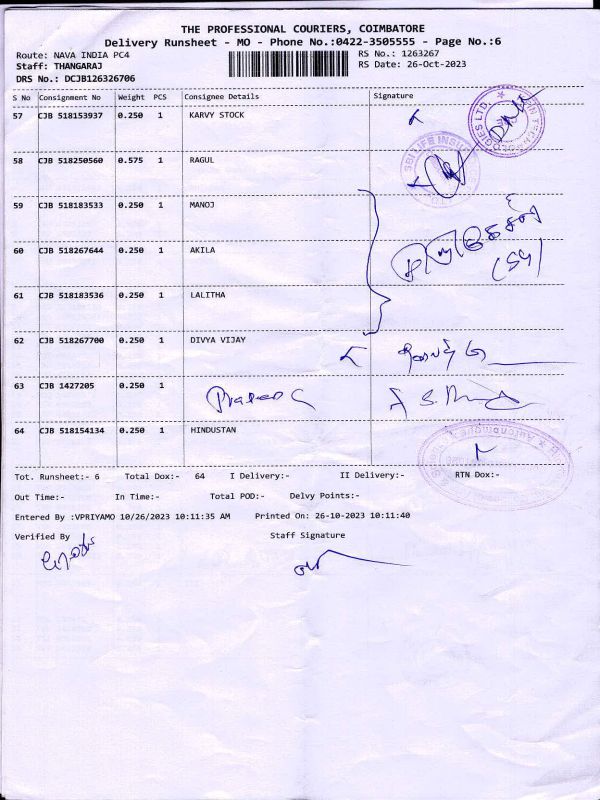 THE PROFESSIONAL COURIERS, COIMBATORE
Delivery Runsheet - MO - Phone No.:0422-3505555 - Page No.:6
Route: NAVA INDIA PC4 RS No.: 1263267
Staff: THANGARAJ RS Date: 26-Oct-2023
DRS No.: DCJB126326706
S No Consignment No Weight PCS Consignee Details Signature
57 CJB 518153937 0.250 1 KARVY STOCK
58 CJB 518250560 0.575 1 RAGUL
SBI LIFE INSU
59 CJB 518183533 0.250 1 MANOJ
60 CJB 518267644 0.250 1 AKILA
61 CJB 518183536 0.250 1 LALITHA
62 CJB 518267700 0.250 1 DIVYA VIJAY
63 CJB 1427205 0.250 1
64 CJB 518154134 0.250 1 HINDUSTAN
Tot. Runsheet:- 6 Total Dox:- 64 I Delivery:- II Delivery:- RTN Dox:-
Out Time:- In Time:- Total POD:- Delvy Points:-
Entered By :VPRIYAMO 10/26/2023 10:11:35 AM Printed On: 26-10-2023 10:11:40
Verified By Staff Signature